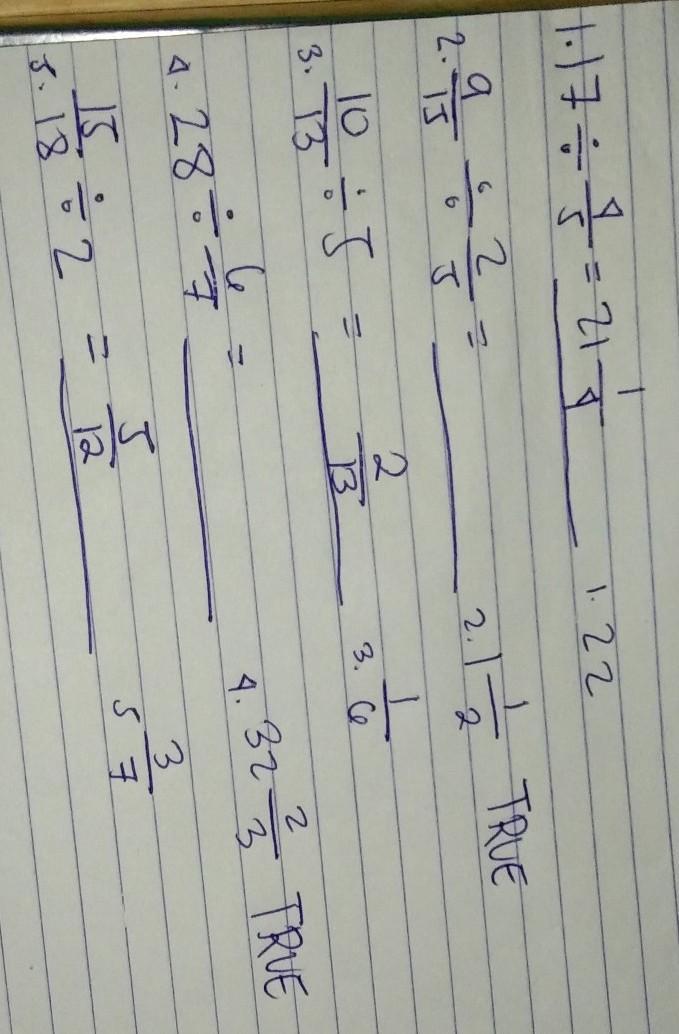 1. 17 ÷ 4/5 = 21 1/4 1. 22
2. 9/15 ÷ 2/5 = ____ 2. 1 1/2 TRUE
3. 10/13 ÷ 5 = 2/13 3. 1/6
4. 28 ÷ 6/7 = ____ 4. 32 2/3 TRUE
5. 15/18 ÷ 2 = 5/12 5 3/7